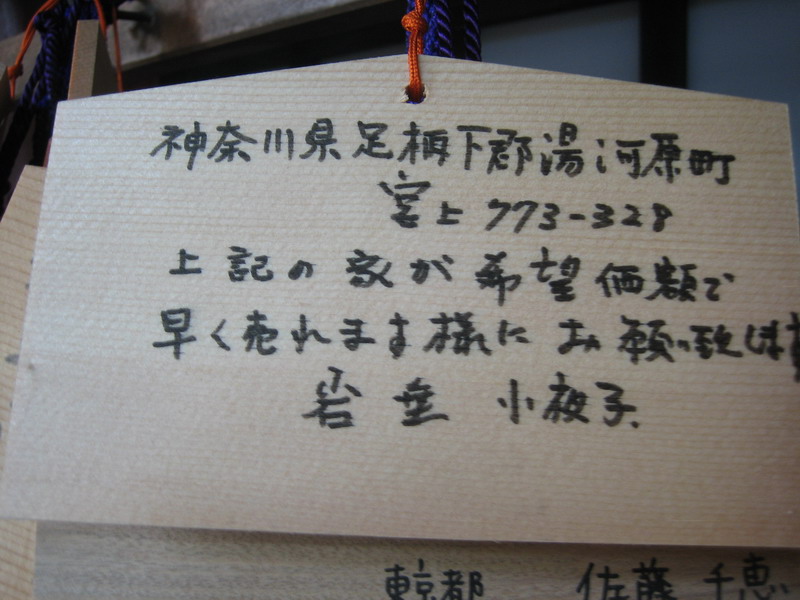 神奈川県足柄下郡湯河原町
宮上773-328
上記の家が希望価額で
早く売れます様にお願い致しま
小夜子
東京都 佐藤 千恵